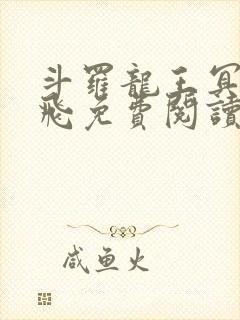 斗羅龍王冥
飛免費閱讀
咸鱼火